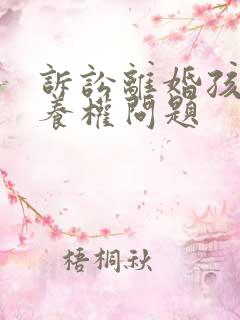 訴訟離婚孩
養權問題
梧桐秋